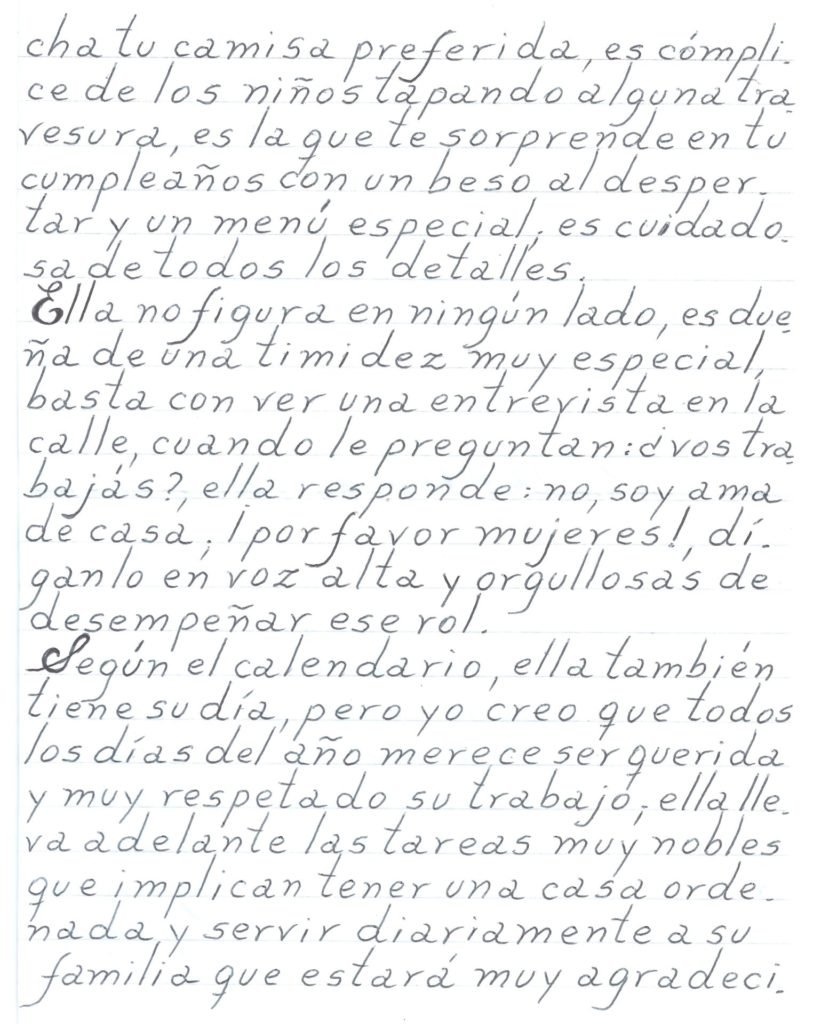 cha tu camisa preferida, es cómpli-
ce de los niños tapando alguna tra-
vesura, es la que te sorprende en tu
cumpleaños con un beso al desper-
tar y un menú especial; es cuidado-
sa de todos los detalles.
Ella no figura en ningún lado, es due-
ña de una timidez muy especial,
basta con ver una entrevista en la
calle, cuando le preguntan: ¿vos tra-
bajás?, ella responde: no, soy ama
de casa; ¡por favor mujeres!, dí-
ganlo en voz alta y orgullosas de
desempeñar ese rol.
Según el calendario, ella también
tiene su día, pero yo creo que todos
los días del año merece ser querida
y muy respetado su trabajo; ella lle-
va adelante las tareas muy nobles
que implican tener una casa orde-
nada y servir diariamente a su
familia que estará muy agradeci-